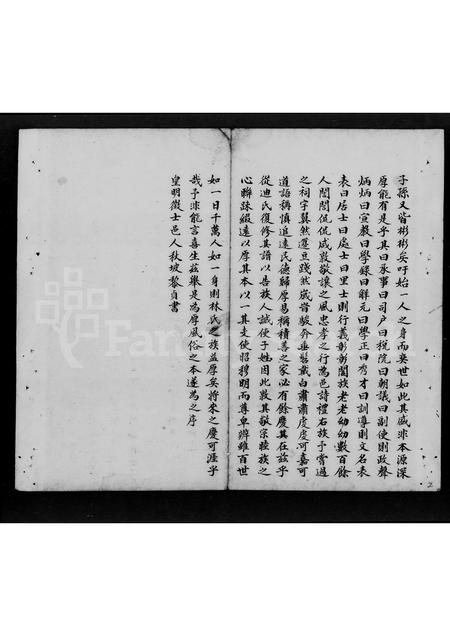 子孫又皆彬彬矣吁始一人之身而奕世如此其盛非本源深
厚能有是乎其曰承事曰司户曰稅院曰朝議曰副使則政聲
炳炳曰宣教曰學錄曰解元曰學正曰秀才曰訓導則文名表
表曰居士曰處士曰里士則行義彰彰闔族老老幼幼數百餘
人誾誾侃侃咸敦敬讓之風忠孝之行為邑詩禮右族予嘗過
之祠宇翼然籩豆踐然咸昔駿奔垂髫戴白肅肅虔虔可嘉可
道語稱慎追遠民德歸厚易稱積善之家必有餘慶其在茲乎
從迪氏復修其譜以善族人誠使子姓因此敦其敬宗睦族之
心聯疎綴遠以厚其本以一其支使昭穆明而尊卑辨雖百世
如一日千萬人如一身則林氏之族益厚矣將來之慶可涯乎
哉予非能言喜生茲舉是為厚風俗之本遂為之序
皇明徵士邑人秋坡黎貞書